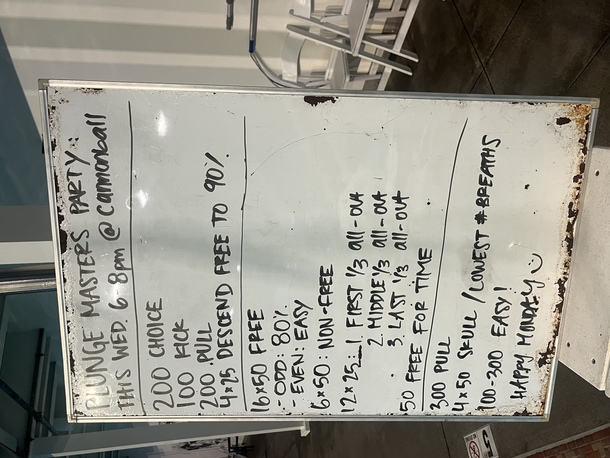 PLUNGE MASTERS PARTY:
THIS WED. 6-8pm @ Cannonball
200 CHOICE
100 KICK
200 PULL
4x25 DESCEND FREE TO 90%
16x50 FREE
- ODD: 80%
- EVEN: EASY
6x50: NON-FREE
12x25: 1. FIRST 1/3 all-out
2. MIDDLE 1/3 all-out
3. LAST 1/3 all-out
50 FREE FOR TIME
300 PULL
4x50 SKULL /LOWEST #BREATHS
100-300 EASY!
HAPPY MONDAY